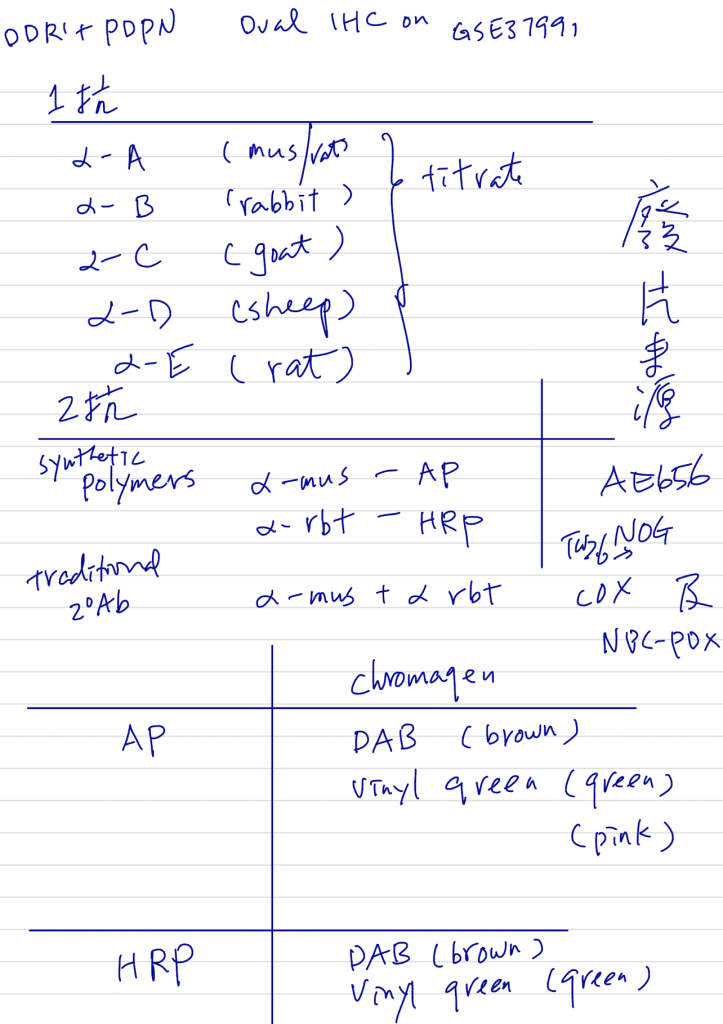 DDR1 + PDPN Oval IHC on GSE37991
1抗
α-A (mus/rat)
α-B (rabbit)
α-C (goat)
α-D (sheep)
α-E (rat)
titrate
廢
片
來
源
2抗
synthetic polymers α-mus - AP
α-rbt - HRP
AE656
NOG
traditional 2°Ab α-mus + α rbt
CDX 及
NBC-PDX
chromagen
AP DAB (brown)
Vinyl green (green)
(pink)
HRP DAB (brown)
Vinyl green (green)